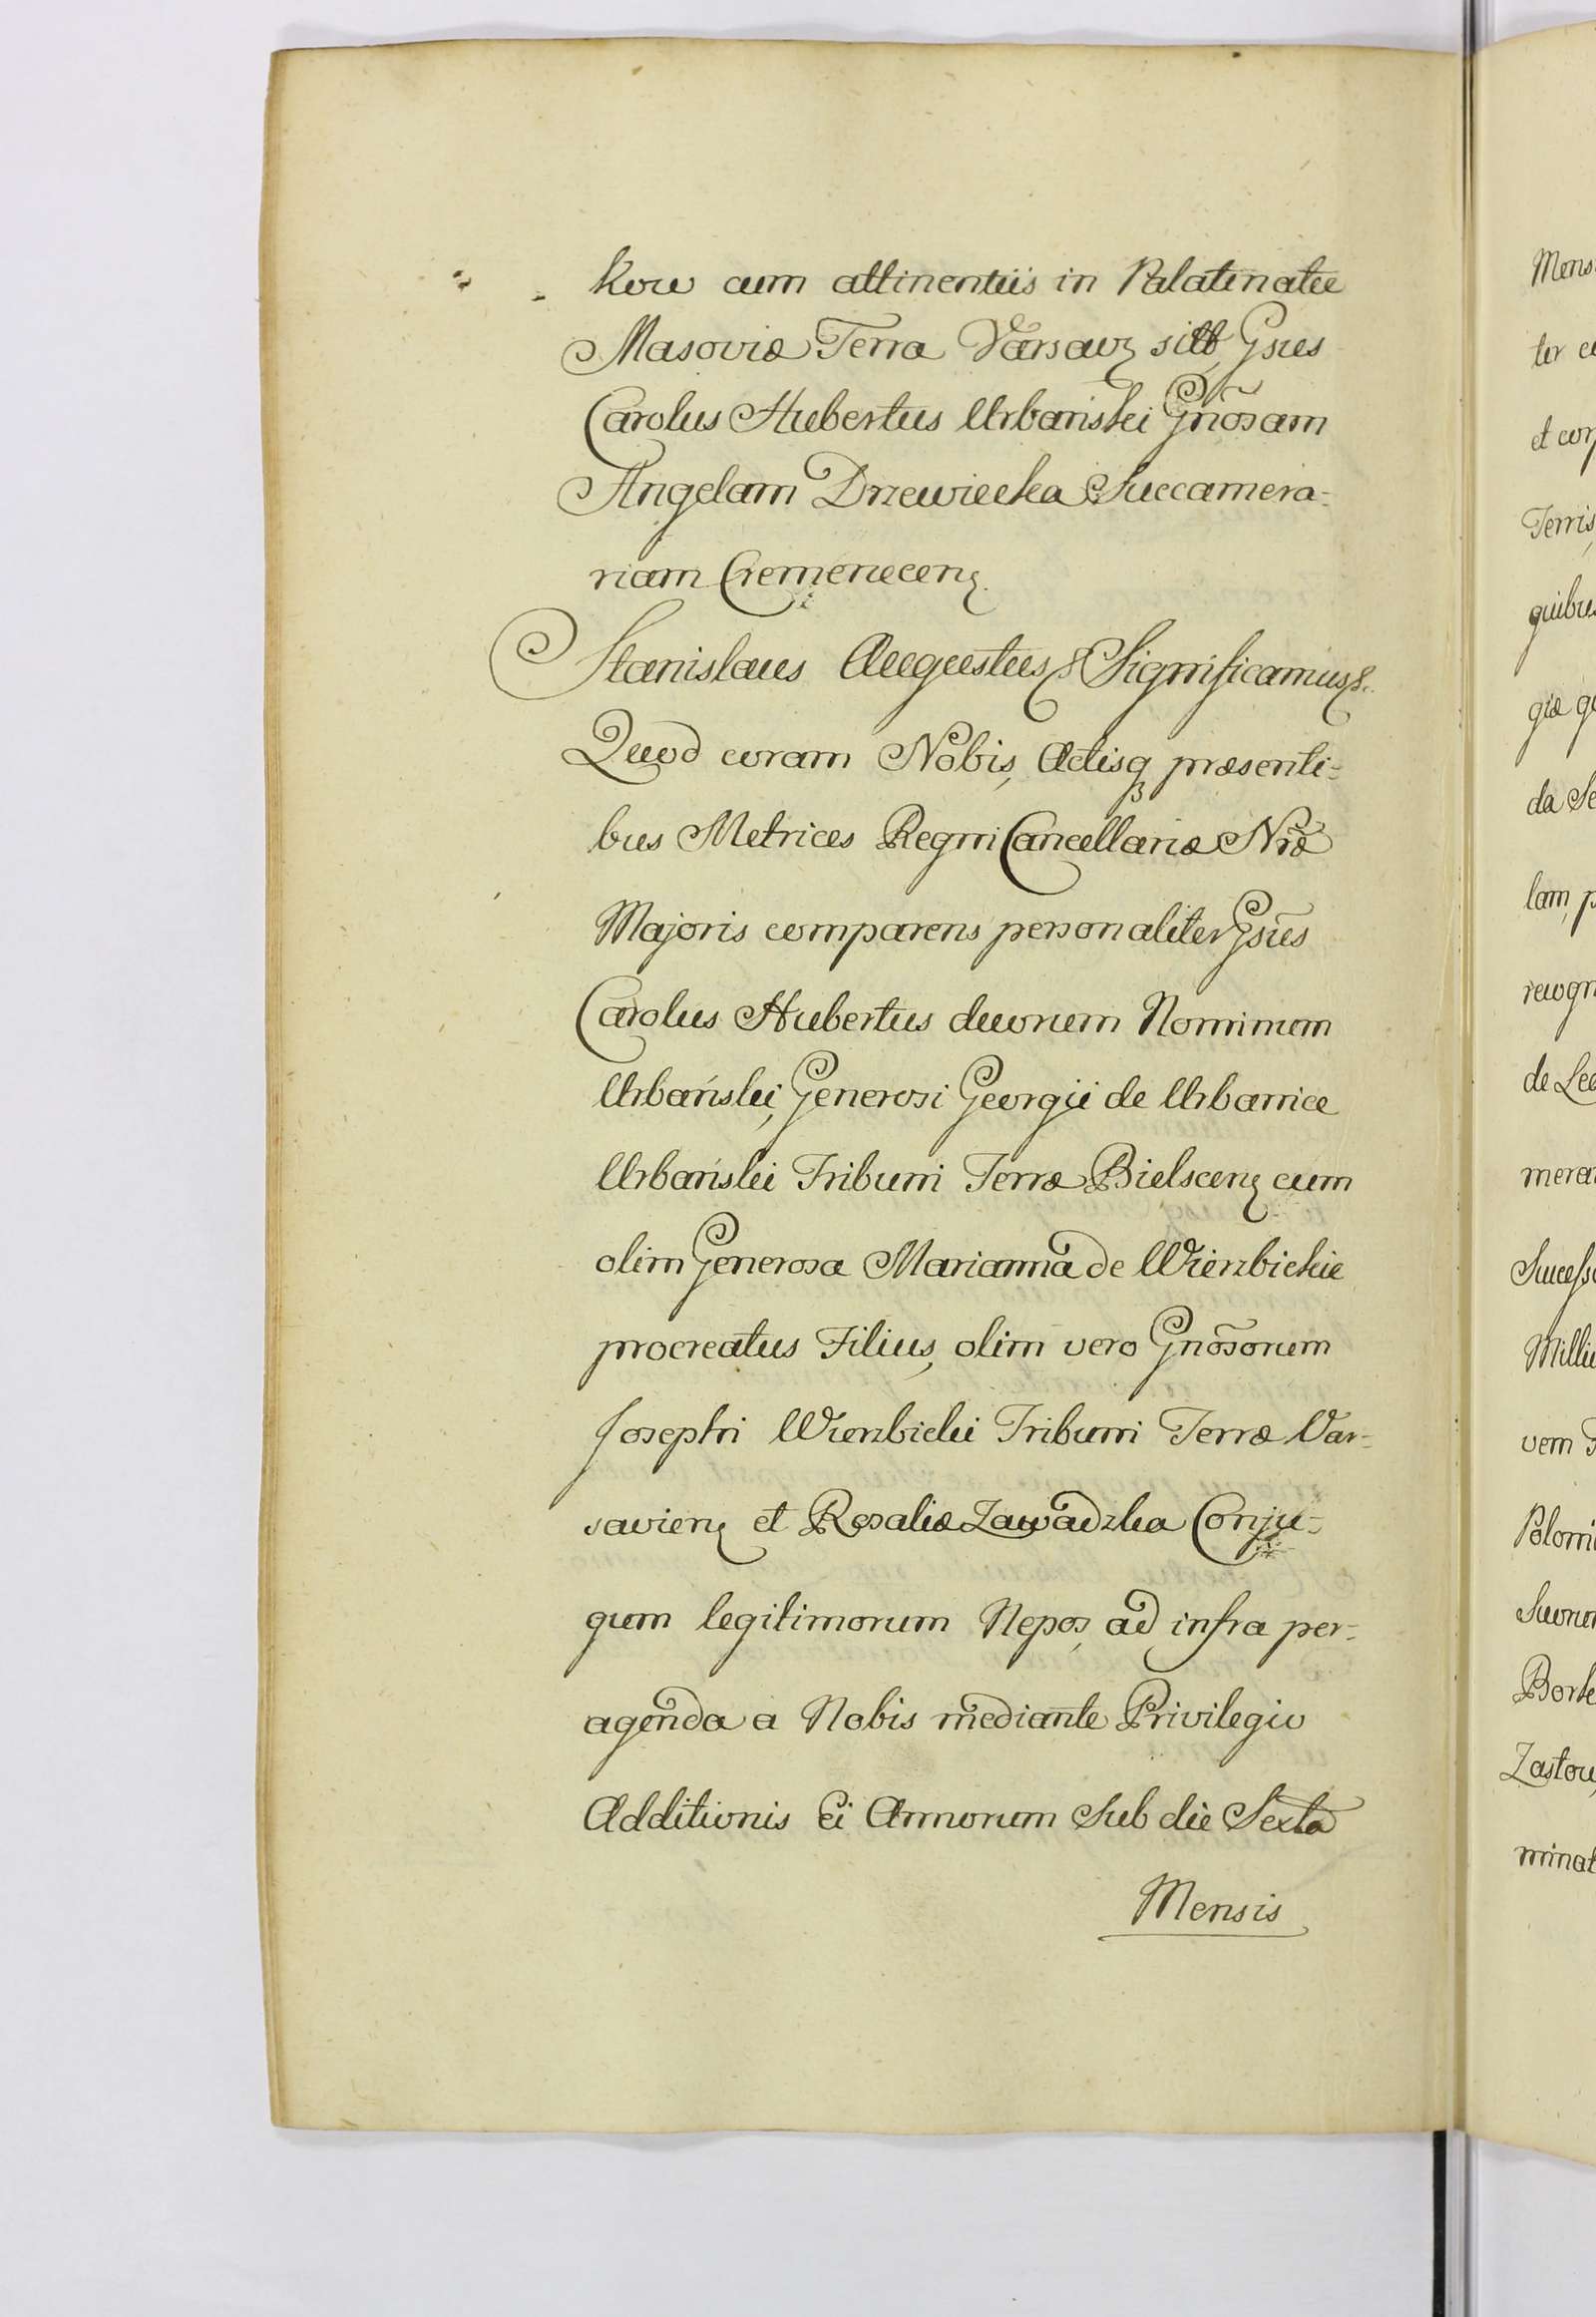 kow cum attinentiis in Palatinatu
Masoviæ Terra Varsavꝫ sitt Gsus
Carolus Hubertus Urbański Gnõsam
Angelam Drzewiecka Succamera-
riam Cremenecenꝫ
Stanislaus Augustus & Significamus &.
Quod coram Nobis, Actisqꝫ præsenti-
bus Metrices Regni Cancellariæ Nræ
Majoris comparens personaliter Gsus
Carolus Hubertus duorum Nominum
Urbański, Generosi Georgii de Urbanice
Urbański Tribuni Terræ Bielscenꝫ cum
olim Generosa Marianna de Wierzbickie
procreatus Filius, olim vero Gnõsorum
Josephi Wierzbicki Tribuni Terræ Var-
savienꝫ et Rosaliæ Zawadzka Conju-
gum legitimorum Nepos, ad infra per-
agenda a Nobis mediante Privilegio
Additionis Ei Annorum sub die Sexta
Mensis
Mens
ter
et cor
Terris,
quibus
giæ
da Se
lam,
recogn
de Le
mera
Success
Milli
vem
Poloni
Suoru
Bork
Zastow
minat